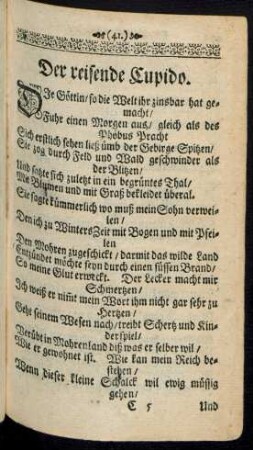 (41.)
Der reisende Cupido.
DJe Göttin / so die Welt ihr zinsbar hat ge-
macht /
Fuhr einen Morgen aus / gleich als des
Phöbus Pracht
Sich erstlich sehen ließ ümb der Gebirge Spitzen /
Sie zog durch Feld und Wald geschwinder als
der Blitzen /
Und satzte sich zuletzt in ein begrüntes Thal /
Mit Blumen und mit Graß bekleidet überal.
Sie sagte kümmerlich wo muß mein Sohn verwei-
len /
Den ich zu Winters Zeit mit Bogen und mit Pfei-
len
Den Mohren zugeschickt / darmit das wilde Land
Entzündet möchte seyn durch einen süssen Brand /
So meine Glut erweckt. Der Lecker macht mir
Schmertzen /
Ich weiß er nim̃t mein Wort ihm nicht gar sehr zu
Hertzen /
Geht seinem Wesen nach / treibt Schertz und Kin-
derspiel /
Verübt in Mohrenland diß was er selber wil /
Wie er gewohnet ist. Wie kan mein Reich be-
stehen /
Wenn dieser kleine Schalck wil ewig müssig
gehen /
C 5 Und